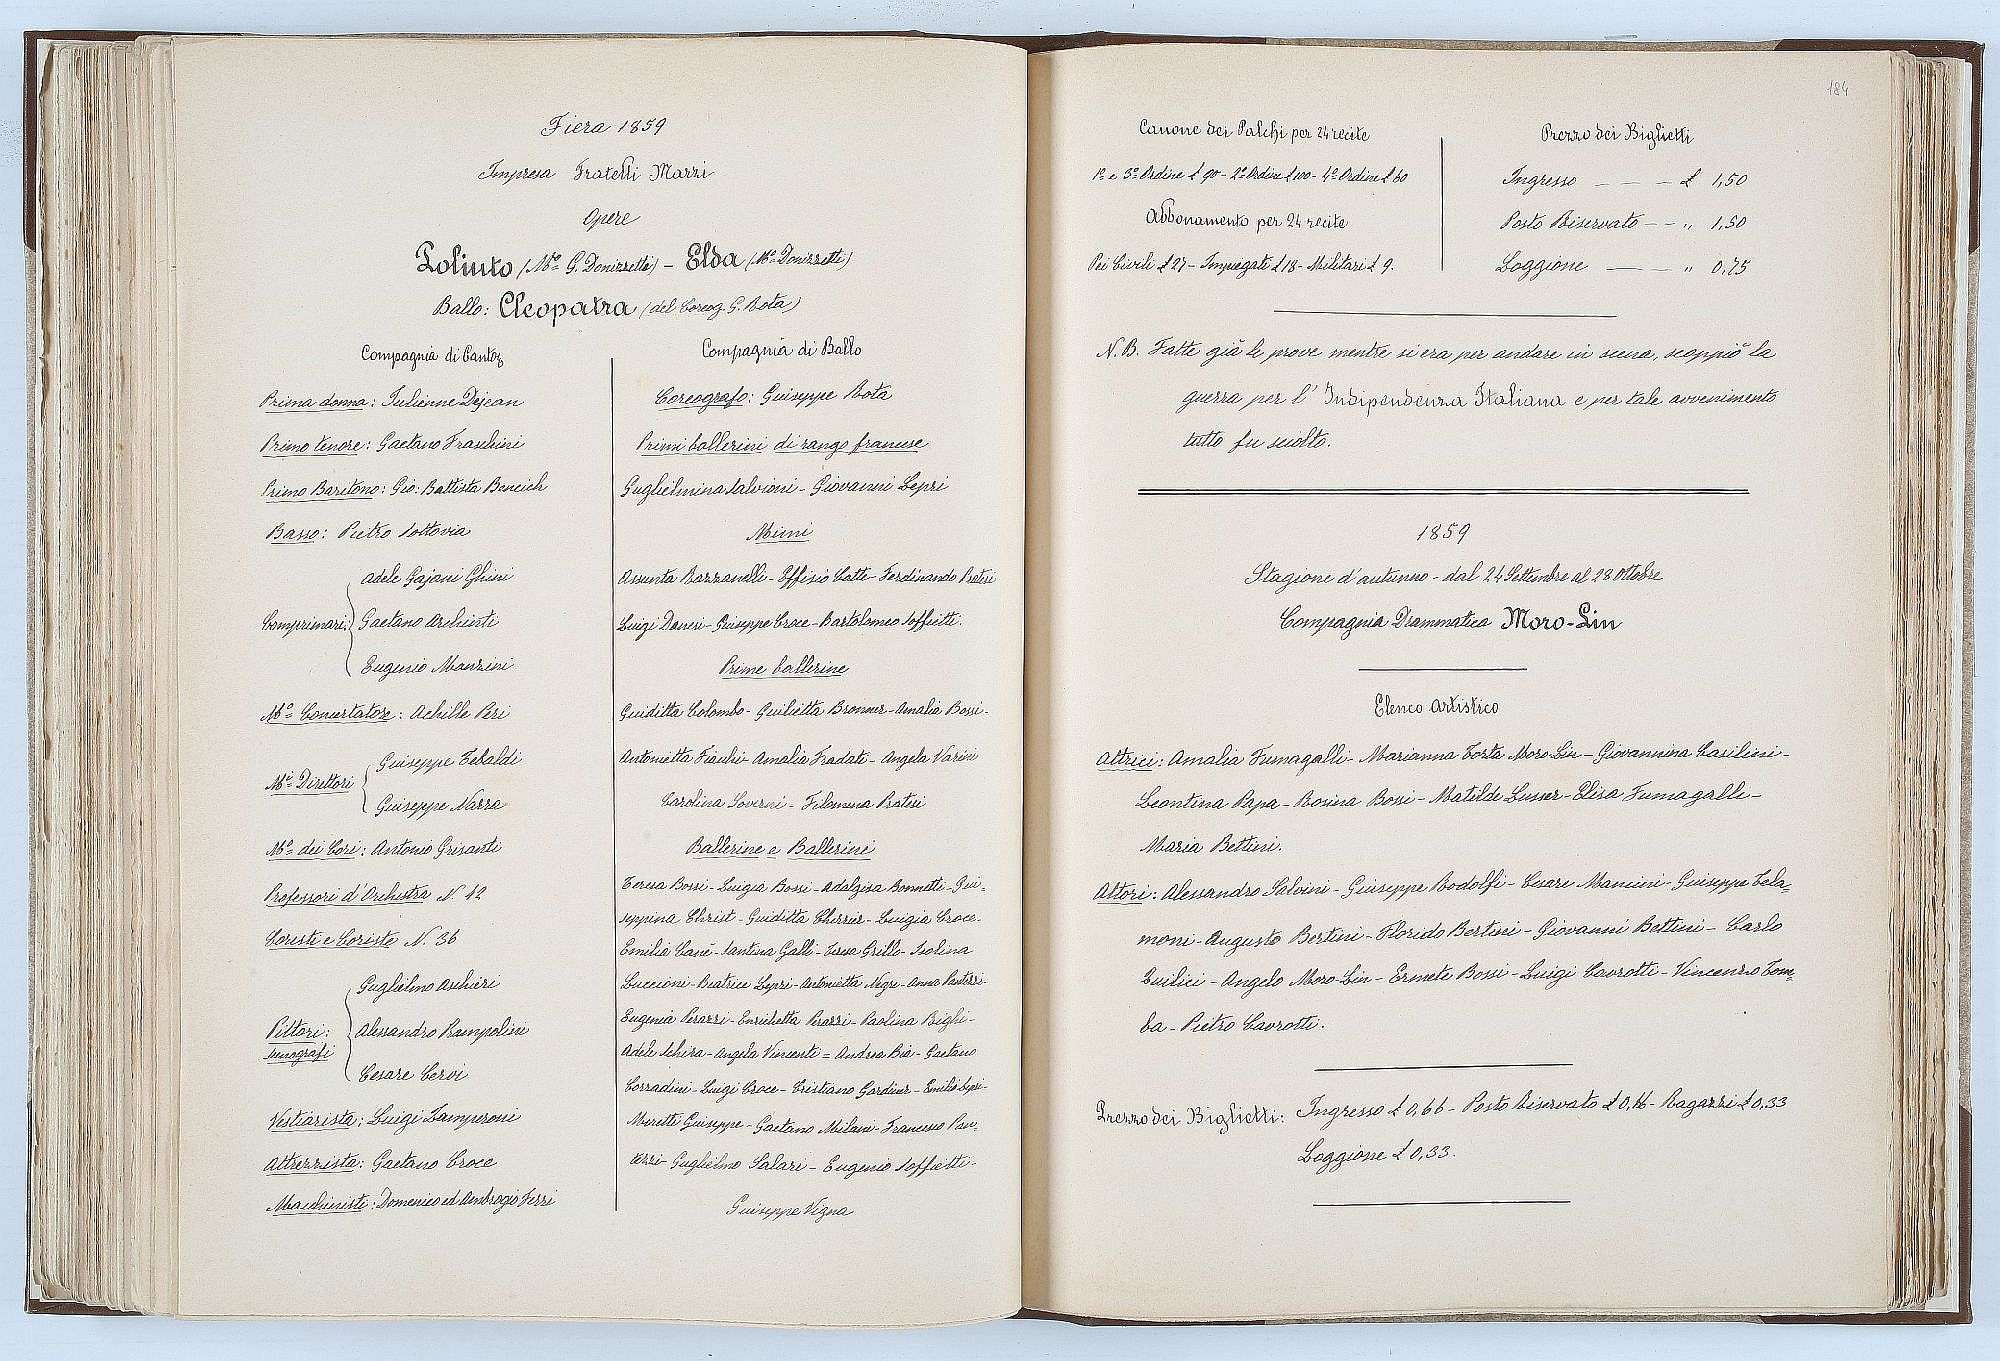 Fiera 1859
Impresa Fratelli Marzi
Opere
Poliuto (Mo. G. Donizzetti) - Elda (Mo. Donizzetti)
Ballo: Cleopatra (del Coreog. G. Rota)
Compagnia di Canto
Prima donna: Julienne Dejean
Primo tenore: Gaetano Fraschini
Primo Baritono: Gio: Battista Bencich
Basso: Pietro Sottovia
Comprimari:
Adele Gajani Ghini
Gaetano Archinti
Eugenio Manzini
Mo. Concertatore: Achille Peri
Mi. Direttori
Giuseppe Tebaldi
Giuseppe Narra
Mo. dei Cori: Antonio Grisanti
Professori d'Orchestra N. 42
Coristi e Coriste N. 36
Pittori:
scenografi
Guglielmo Aschieri
Alessandro Rampolini
Cesare Cervi
Vestiarista: Luigi Zamperoni
Attrezzista: Gaetano Croce
Macchinisti: Domenico ed Ambrogio Ferri
Compagnia di Ballo
Coreografo: Giuseppe Rota
Primi ballerini di rango francese
Guglielmina Salvioni - Giovanni Lepri
Mimi
Assunta Razzanelli - Effisio Catte - Ferdinando Pratesi
Luigi Danesi - Giuseppe Croce - Bartolomeo Soffietti.
Prime ballerine
Giuditta Colombo - Giulietta Bronner - Amalia Bossi -
Antonietta Fiachi - Amalia Fradati - Angela Varini
Carolina Soverni - Filomena Pratesi
Ballerine e Ballerini
Teresa Bossi - Luigia Bossi - Adalgisa Bonnetti - Giu-
seppina Christ - Giuditta Cherrier - Luigia Croce -
Emilia Canè - Santina Galli - Teresa Grillo - Isolina
Luccioni - Beatrice Lepri - Antonietta Negri - Anna Panizzi -
Eugenia Perazzi - Enrichetta Perazzi - Paolina Bighi -
Adele Schira - Angela Vincenti = Andrea Bia - Gaetano
Corradini - Luigi Croce - Cristiano Gardiner - Emilio Lepri -
Moretti Giuseppe - Gaetano Milani - Francesco Pan-
izzi - Guglielmo Salari - Eugenio Soffietti -
Giuseppe Vigna
184
Canone dei Palchi per 24 recite
1o. e 3o. Ordine £ 90 - 2o. Ordine £ 100 - 4o. Ordine £ 60
Abbonamento per 24 recite
Pei Civili £ 27 - Impiegati £ 18 - Militari £ 9.
Prezzo dei Biglietti
Ingresso - - - £ 1,50
Posto Riservato - - " 1,50
Loggione - - - " 0,75
N.B. Fatte già le prove mentre si era per andare in scena, scoppiò la
guerra per l'Indipendenza Italiana e per tale avvenimento
tutto fu sciolto.
1859
Stagione d'autunno - dal 24 Settembre al 28 Ottobre
Compagnia Drammatica Moro-Lin
Elenco Artistico
Attrici: Amalia Fumagalli - Marianna Torta Moro-Lin - Giovannina Casilini -
Leontina Papa - Rosina Bossi - Matilde Lusser - Elisa Fumagalli -
Maria Bettini.
Attori: Alessandro Salvini - Giuseppe Rodolfi - Cesare Mancini - Giuseppe Tela-
moni - Augusto Bertini - Florido Bertini - Giovanni Bettini - Carlo
Quilici - Angelo Moro-Lin - Ermete Bossi - Luigi Cavrotti - Vincenzo Tom-
ba - Pietro Cavrotti.
Prezzo dei Biglietti: Ingresso £ 0,66 - Posto riservato £ 0,66 - Ragazzi £ 0,33
Loggione £ 0,33.